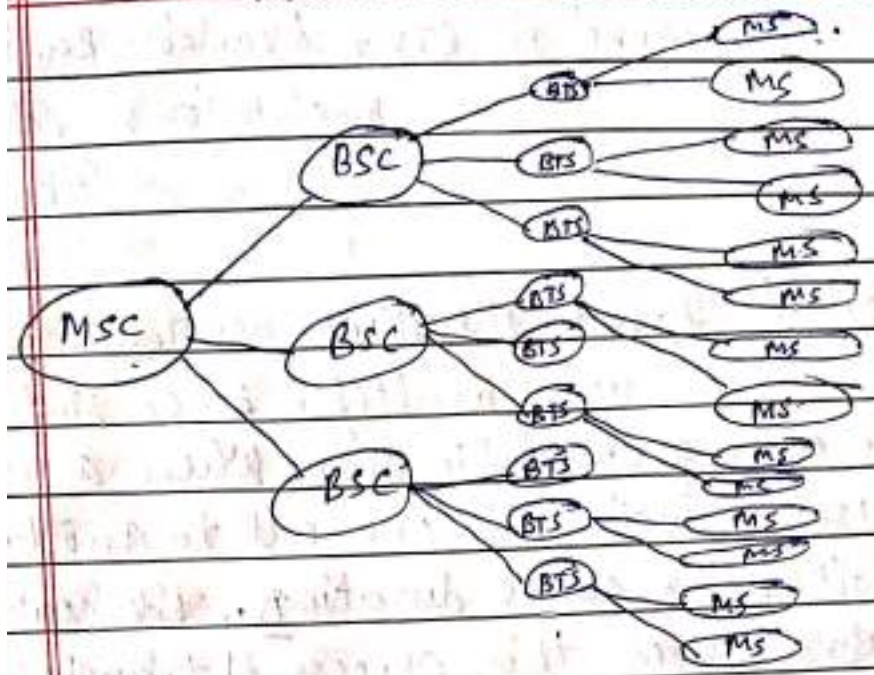 MSC
BSC
BSC
BSC
BTS
BTS
BTS
BTS
BTS
BTS
BTS
BTS
BTS
MS
MS
MS
MS
MS
MS
MS
MS
MS
MS
MS
MS
MS
MS